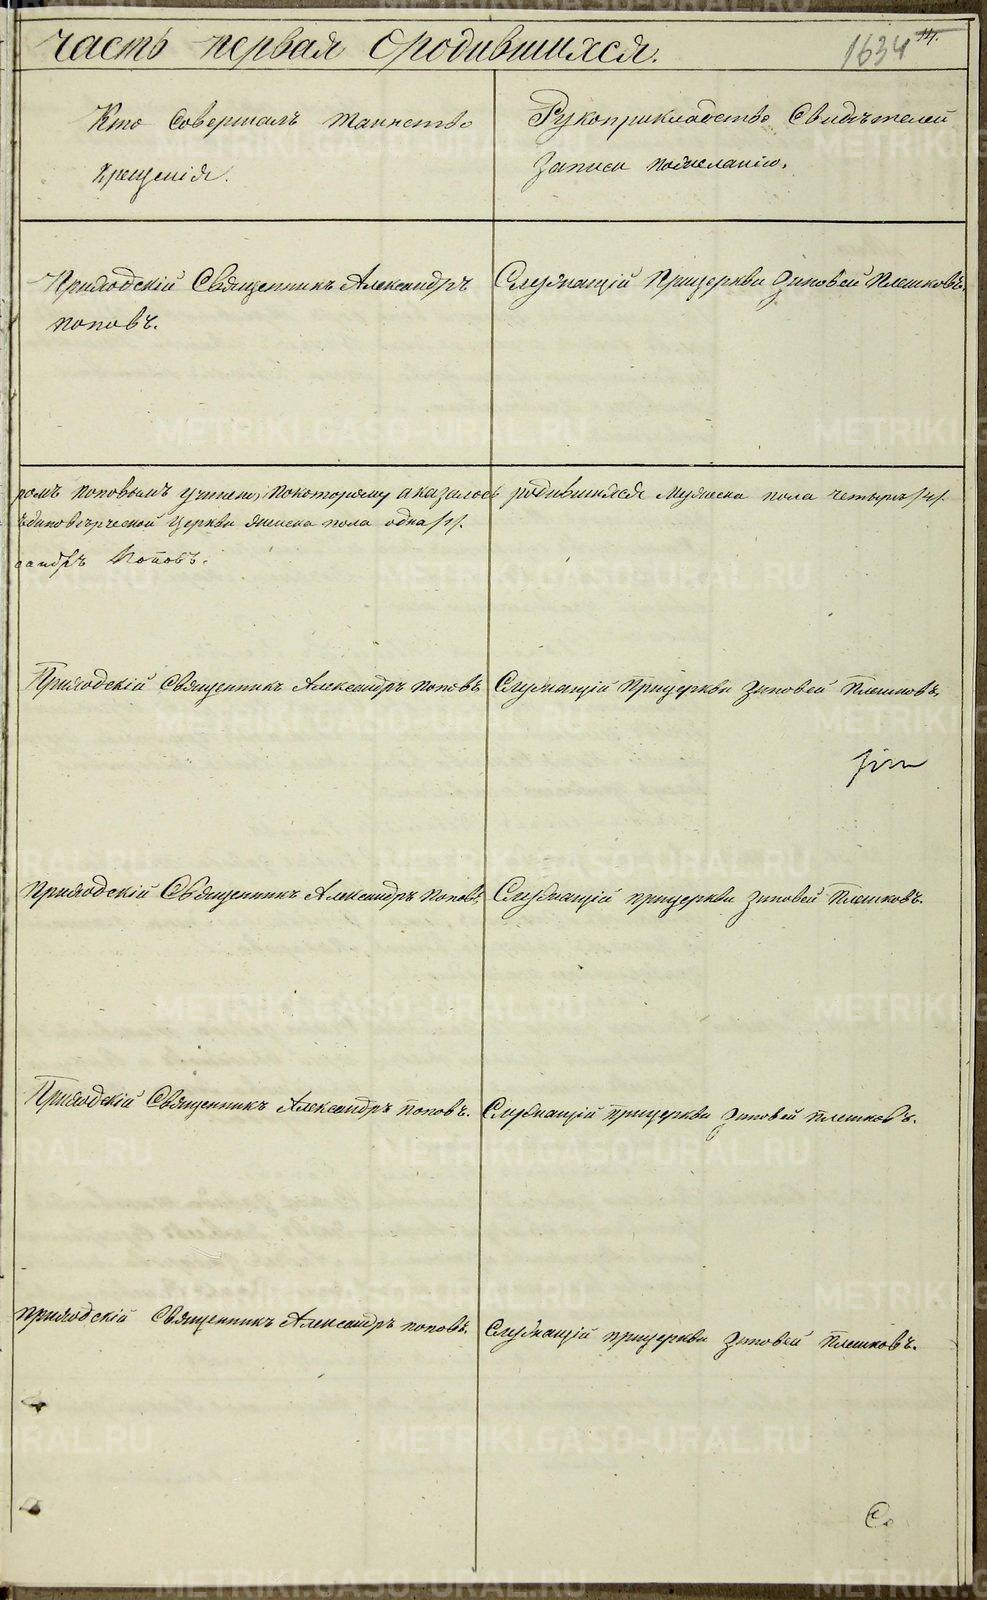 часть первая о родившихся.
1634
Кто Совершалъ таинство
крещенiя.
Рукоприкладство Свидѣтелей
записи
Приходскiй Священникъ Александръ
поповъ.
Служащiй Прицеркви Зиновей Плешковъ.
ромъ поповымъ учтено, покоторому аказалось родившихся Мужеска пола четыре /4/.
Единоверческой Церкви женска пола одна /1/.
сандръ Поповъ.
Приходскiй Священникъ Александръ поповъ
Служащiй Прицеркви Зиновей Плешковъ,
Приходскiй Священникъ Александръ Поповъ.
Служащiй прицеркви Зиновей Плешковъ.
Приходскiй Священникъ Александръ поповъ.
Служащiй прицеркви Зиновей плешковъ.
приходскiй Священникъ Александръ поповъ.
Служащiй прицеркви Зиновей плешковъ.
С.
METRIKI.GASO-URAL.RU